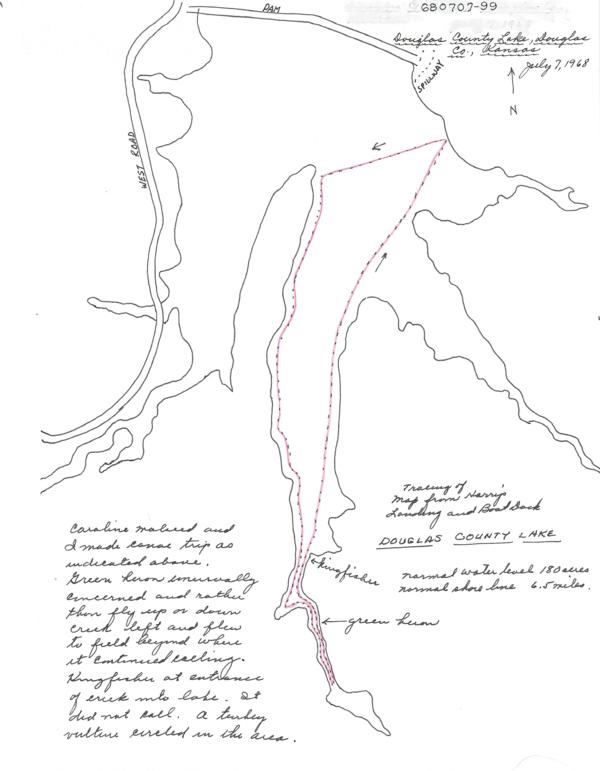 680707-99
DAM
Douglas County Lake, Douglas
Co., Kansas
July 7, 1968
SPILLWAY
N
WEST ROAD
Tracing of
Map from Harry's
Landing and Boat Dock
DOUGLAS COUNTY LAKE
normal water level 180 acres
normal shore line 6.5 miles.
kingfisher
green heron
Caroline and
I made canoe trip as
indicated above.
Green heron unusually
concerned and rather
than fly up or down
creek left and flew
to field beyond where
it continued calling.
Kingfisher at entrance
of creek into lake. It
did not call. A turkey
vulture circled in the area.